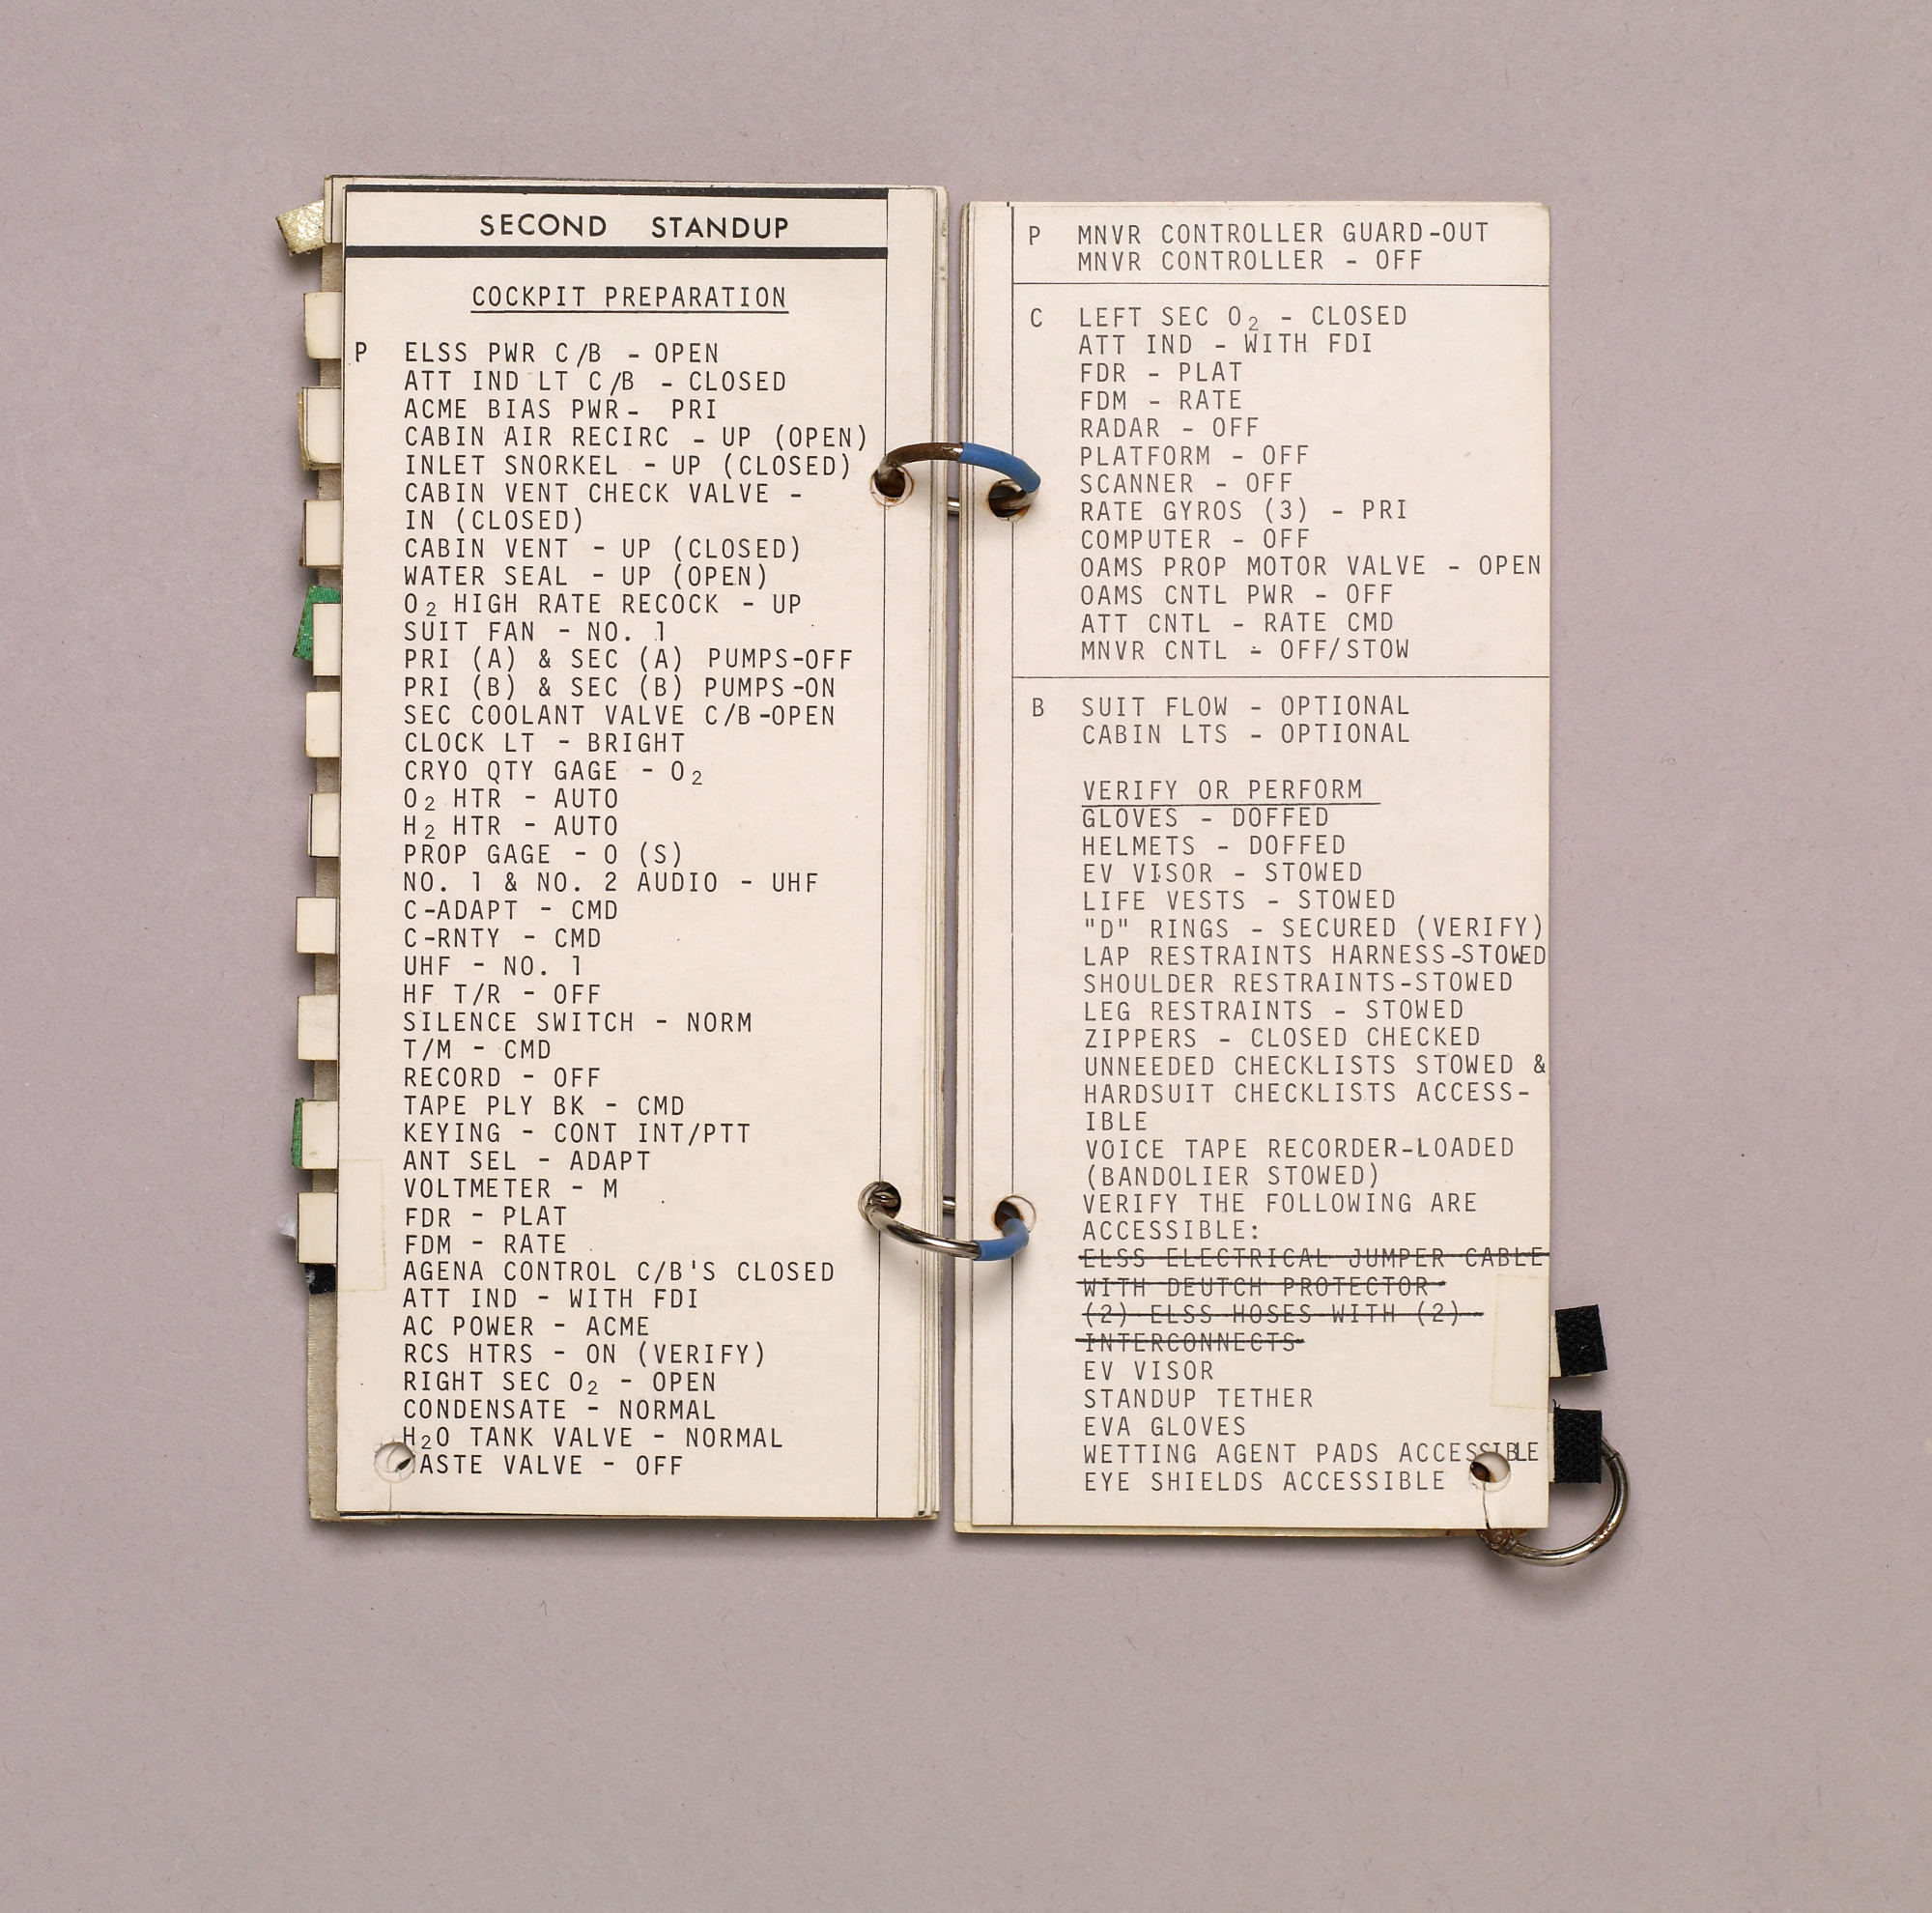 SECOND STANDUP
COCKPIT PREPARATION
P ELSS PWR C/B - OPEN
ATT IND LT C/B - CLOSED
ACME BIAS PWR- PRI
CABIN AIR RECIRC - UP (OPEN)
INLET SNORKEL - UP (CLOSED)
CABIN VENT CHECK VALVE -
IN (CLOSED)
CABIN VENT - UP (CLOSED)
WATER SEAL - UP (OPEN)
O₂ HIGH RATE RECOCK - UP
SUIT FAN - NO. 1
PRI (A) & SEC (A) PUMPS-OFF
PRI (B) & SEC (B) PUMPS-ON
SEC COOLANT VALVE C/B-OPEN
CLOCK LT - BRIGHT
CRYO QTY GAGE - O₂
O₂ HTR - AUTO
H₂ HTR - AUTO
PROP GAGE - O (S)
NO. 1 & NO. 2 AUDIO - UHF
C-ADAPT - CMD
C-RNTY - CMD
UHF - NO. 1
HF T/R - OFF
SILENCE SWITCH - NORM
T/M - CMD
RECORD - OFF
TAPE PLY BK - CMD
KEYING - CONT INT/PTT
ANT SEL - ADAPT
VOLTMETER - M
FDR - PLAT
FDM - RATE
AGENA CONTROL C/B'S CLOSED
ATT IND - WITH FDI
AC POWER - ACME
RCS HTRS - ON (VERIFY)
RIGHT SEC O₂ - OPEN
CONDENSATE - NORMAL
H₂O TANK VALVE - NORMAL
ASTE VALVE - OFF
P MNVR CONTROLLER GUARD-OUT
MNVR CONTROLLER - OFF
C LEFT SEC O₂ - CLOSED
ATT IND - WITH FDI
FDR - PLAT
FDM - RATE
RADAR - OFF
PLATFORM - OFF
SCANNER - OFF
RATE GYROS (3) - PRI
COMPUTER - OFF
OAMS PROP MOTOR VALVE - OPEN
OAMS CNTL PWR - OFF
ATT CNTL - RATE CMD
MNVR CNTL - OFF/STOW
B SUIT FLOW - OPTIONAL
CABIN LTS - OPTIONAL
VERIFY OR PERFORM
GLOVES - DOFFED
HELMETS - DOFFED
EV VISOR - STOWED
LIFE VESTS - STOWED
"D" RINGS - SECURED (VERIFY)
LAP RESTRAINTS HARNESS-STOWED
SHOULDER RESTRAINTS-STOWED
LEG RESTRAINTS - STOWED
ZIPPERS - CLOSED CHECKED
UNNEEDED CHECKLISTS STOWED &
HARDSUIT CHECKLISTS ACCESS-
IBLE
VOICE TAPE RECORDER-LOADED
(BANDOLIER STOWED)
VERIFY THE FOLLOWING ARE
ACCESSIBLE:
ELSS ELECTRICAL JUMPER CABLE
WITH DEUTCH PROTECTOR
(2) ELSS HOSES WITH (2)
INTERCONNECTS
EV VISOR
STANDUP TETHER
EVA GLOVES
WETTING AGENT PADS ACCESSIBLE
EYE SHIELDS ACCESSIBLE